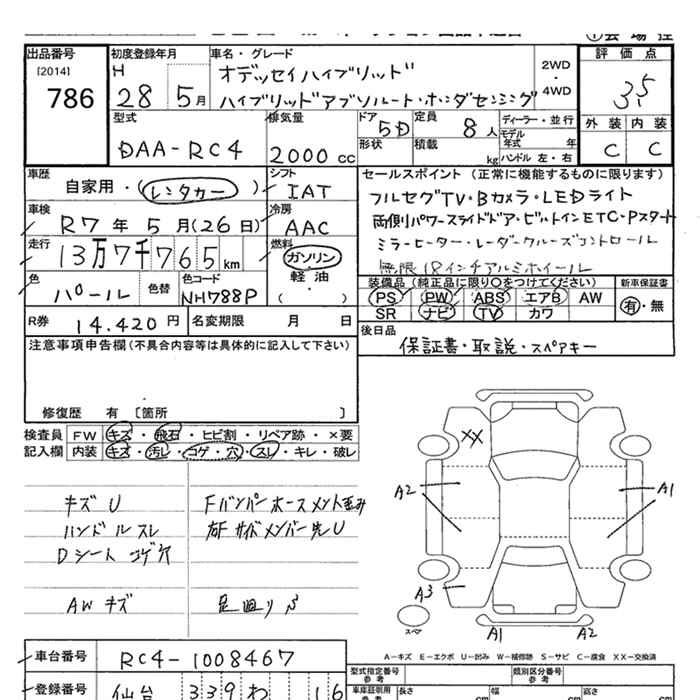 出品番号
[2014]
786
初度登録年月
H
28 5月
車名・グレード
オデッセイハイブリッド
ハイブリッドアブソルート・ホンダセンシング
2WD
・
4WD
評価点
3.5
外装 内装
C C
型式
DAA-RC4
排気量
2000 cc
ドア
5D
形状
定員
8人
積載
kg
ディーラー・並行
モデル
年式 年
ハンドル 左・右
車歴
自家用・(レンタカー)
シフト
IAT
車検
R7年5月(26日)
冷房
AAC
走行
13万7千765km
燃料
ガソリン
軽・油
( )
色
パール
色替
色コード
NH788P
セールスポイント(正常に機能するものに限ります)
フルセグTV・Bカメラ・LEDライト
両側パワースライドドア・ビルトインETC・Pスタート
ミラーヒーター・レーダークルーズコントロール
無限18インチアルミホイール
装備品(純正品に限り○をつけてください)
PS PW ABS エアB AW
SR ナビ TV カワ
新車保証書
有・無
R券
14.420円
名変期限 月 日
後日品
保証書・取説・スペアキー
注意事項申告欄(不具合内容等は具体的に記入して下さい)
修復歴 有 〔箇所 〕
検査員
記入欄
FW キズ・飛石・ヒビ割・リペア跡・×要
内装 キズ・汚レ・コゲ・穴・スレ・キレ・破レ
キズU
ハンドルスレ
Dシートコゲ穴
AWキズ
Fバンパーホースメント歪み
右Fサイドメンバー先U
足廻りS
XX
A2
A1
A3
スペア
A1
A2
A-キズ E-エクボ U-凹み W-補修跡 S-サビ C-腐食 XX-交換済
車台番号
RC4-1008467
型式指定番号
参考
類別区分番号
参考
登録番号
仙台 339 わ 16
車庫証明用
参考
長さ
cm
幅
cm
高さ
cm